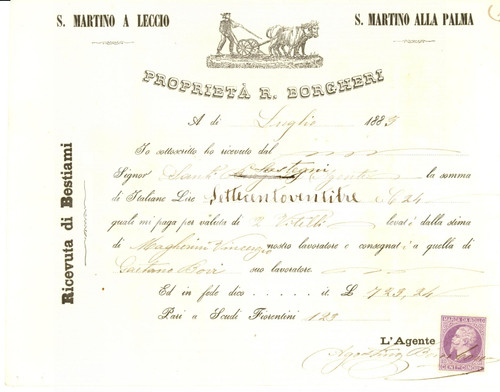 S. MARTINO A LECCIO
S. MARTINO ALLA PALMA
PROPRIETÀ R. BORGHERI
A dì Luglio 1885
Io sottoscritto ho ricevuto dal
Signor la somma
di Italiane Lire Settecentoventitre e C 24
quali mi paga per valuta di 2 Vitelli levati dalla stima
di Magherini Vincenzio nostro lavoratore e consegnati a quella di
Gaetano suo lavoratore.
Ed in fede dico it. L. 723,24
Pari a Scudi Fiorentini 123
L'Agente
Agostino
Ricevuta di Bestiami
MARCA DA BOLLO
CENT. CINQUE